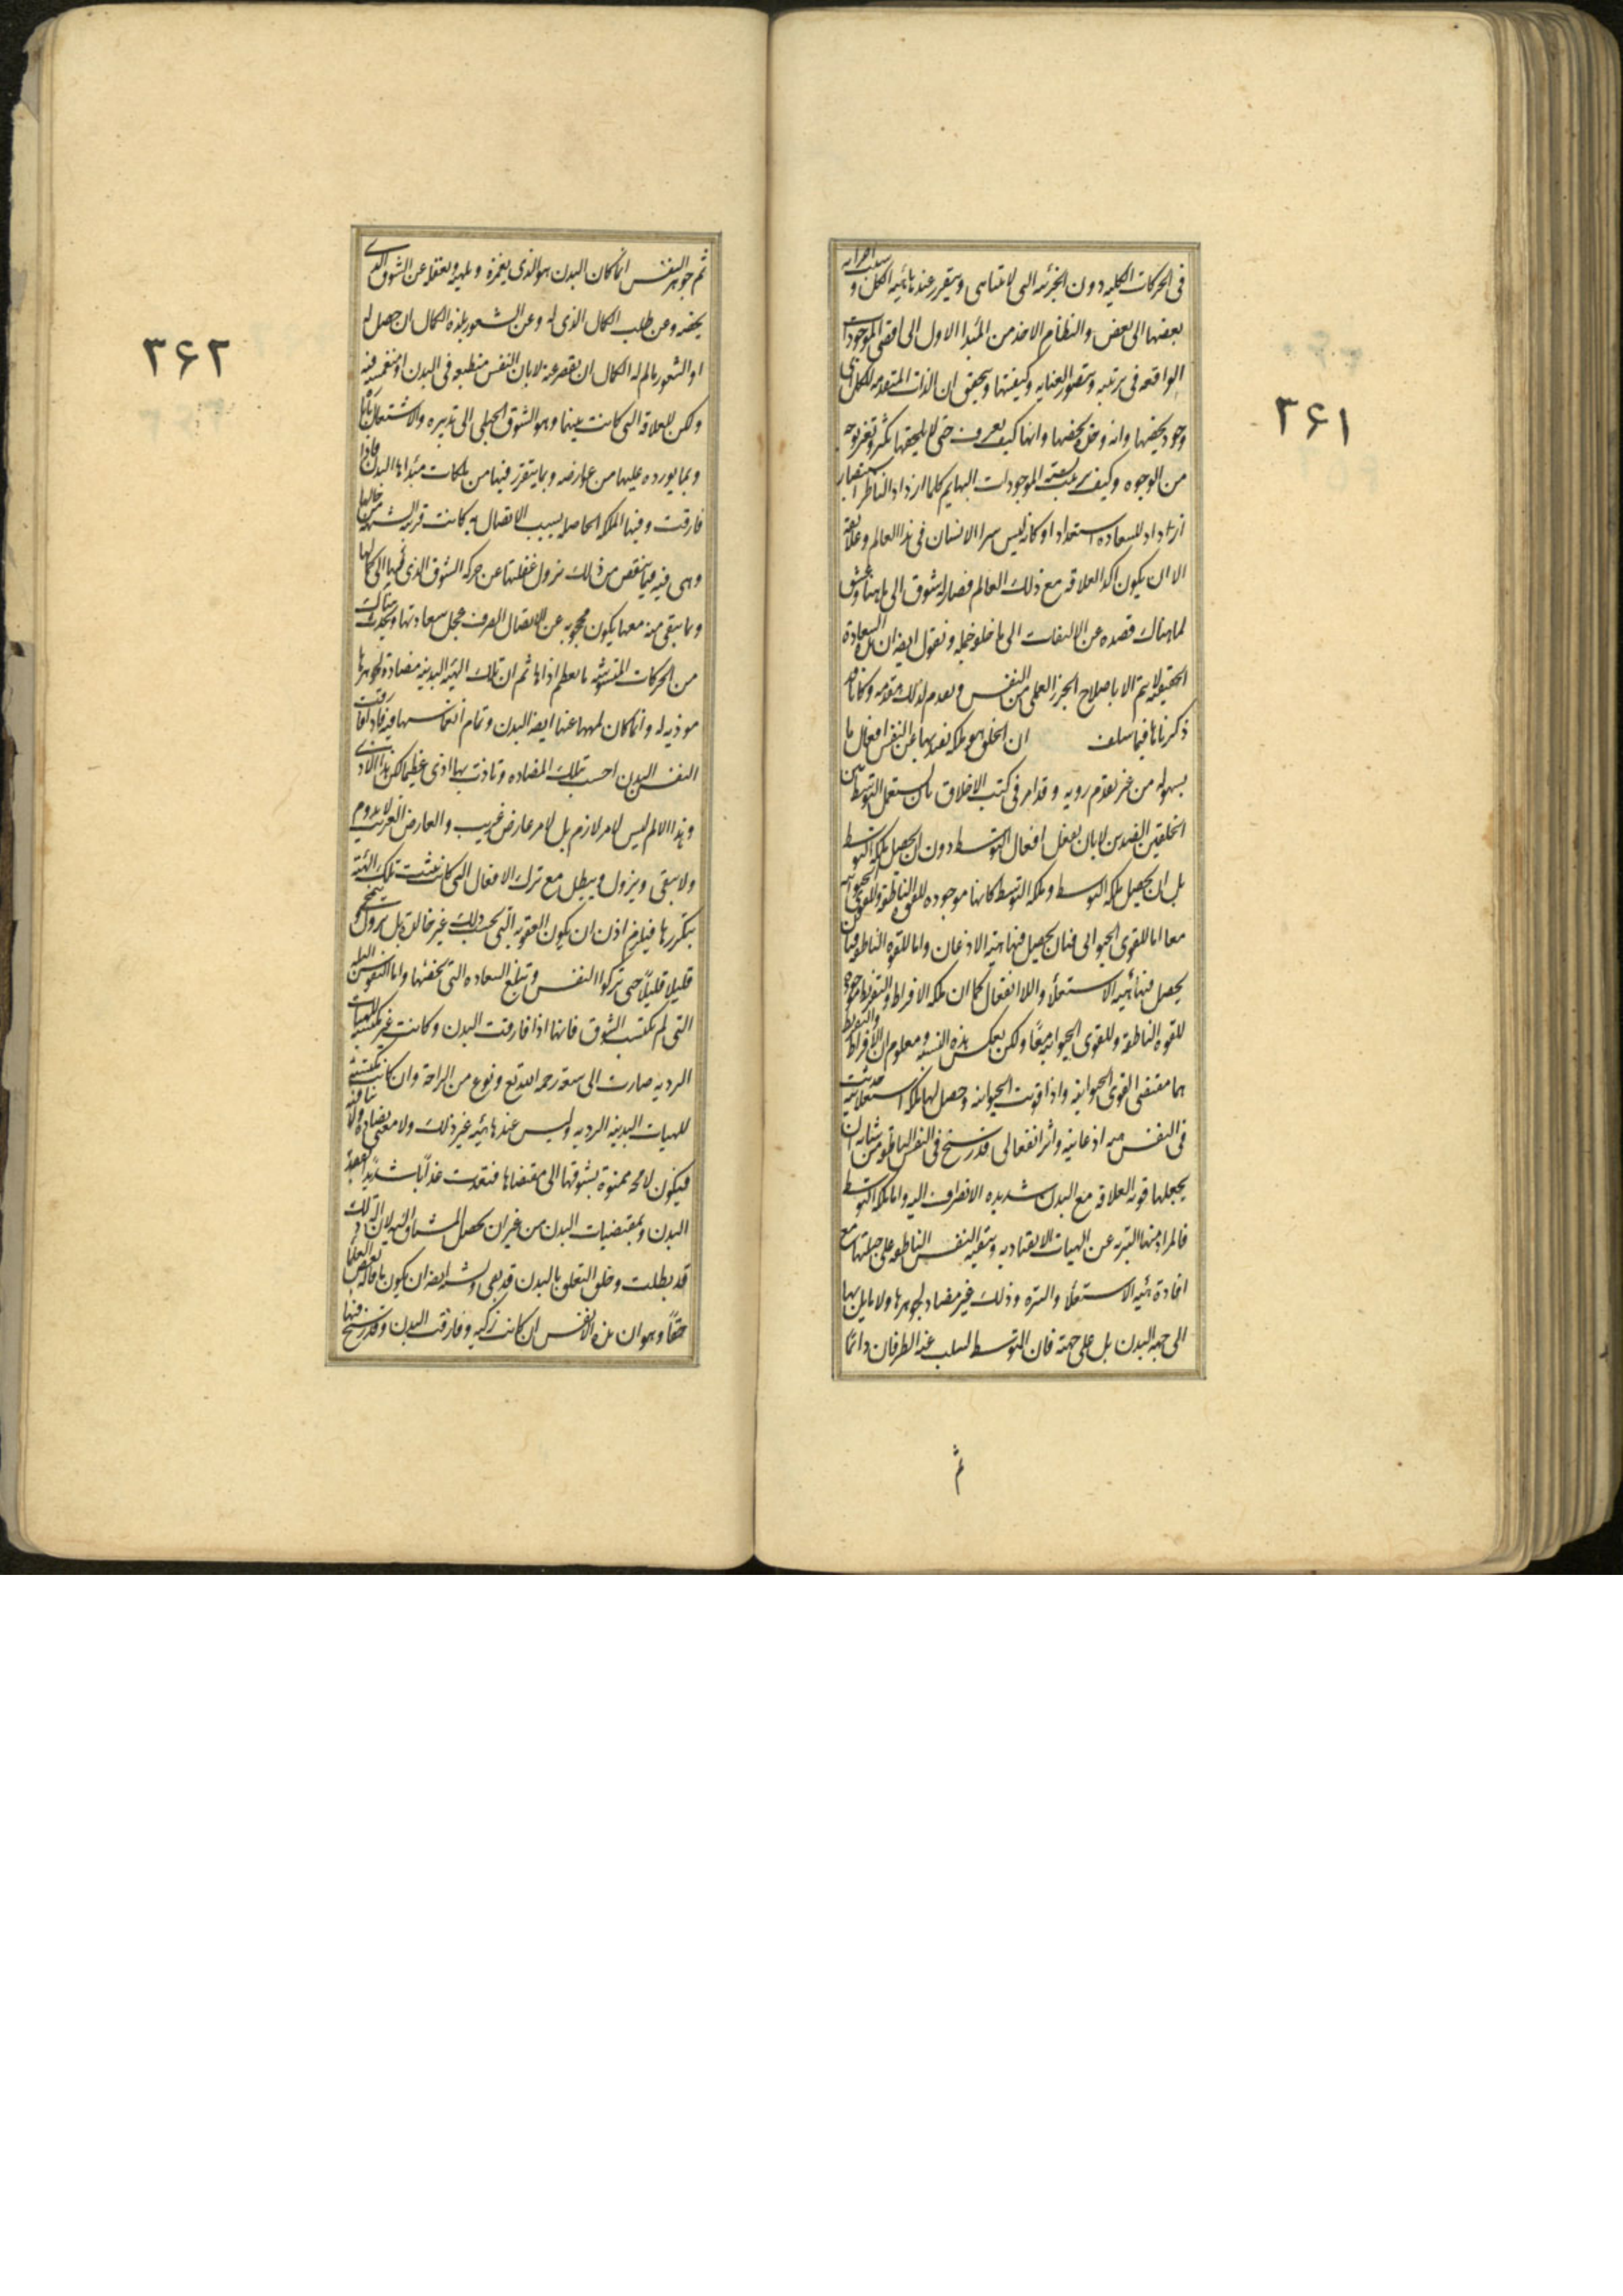 ٣۶١
فی الحرکات الکلیه دون الجزئیه التی لا تتناهی و یتقرر عنده هیئه الکل و نسب اجزائه
بعضها الی بعض و النظام الاخذ من المبدا الاول الی اقصی الموجودات
الواقعه فی ترتیبه و یتصور العنایه و کیفیتها و یتحقق ان الذات المتقدمه للکل ای
وجود یخصها و ای وحده یخصها و انها کیف یعرف حتی لا یلحقها تکثر و تغیر بوجه
من الوجوه و کیف ترتبت نسبه الموجودات الیها ثم کلما ازداد الناظر استبصارا
ازداد للسعاده استعدادا و کانه لیس یبرا الانسان فی هذا العالم و علائقه
الا ان یکون اکد العلاقه مع ذلک العالم فصار له شوق الی ما هناک و عشق
لما هناک فصده عن الالتفات الی ما خلفه جمله و نقول ایضا ان هذه السعاده
الحقیقیه لا یتم الا باصلاح الجزء العملی من النفس و نقدم لذلک مقدمه و کانا قد
ذکرناها فیما سلف ان الخلق هو ملکه تصدر بها عن النفس افعال ما
بسهوله من غیر تقدم رویه و قد امر فی کتب الاخلاق بان یستعمل التوسط بین
الخلقین الضدین لا بان یفعل افعال التوسط دون ان یحصل ملکه التوسط
بل ان یحصل ملکه التوسط و ملکه التوسط کانها موجوده للقوه الناطقه و للقوی الحیوانیه
معا اما للقوی الحیوانیه فبان یحصل فیها هیئه الاذعان و اما للقوه الناطقه فبان
یحصل فیها هیئه الاستعلاء و اللاانفعال کما ان ملکه الافراط و التفریط موجوده
للقوه الناطقه و للقوی الحیوانیه معا و لکن بعکس هذه النسبه و معلوم ان الافراط و التفریط
هما مقتضی القوی الحیوانیه و اذا قویت الحیوانیه و حصل لها ملکه استعلائیه حدثت
فی النفس هیئه اذعانیه و اثر انفعالی قد رسخ فی النفس الناطقه من شانه ان
یجعلها قویه العلاقه مع البدن شدیده الانصراف الیه و اما ملکه التوسط
فالمراد منها التبریه عن الهیات الانقیادیه و تبقیه النفس الناطقه علی جبلتها مع
افاده هیئه الاستعلاء و التنزه و ذلک غیر مضاد لجوهرها و لا مایل بها
الی جهه البدن بل علی جهته فان التوسط یسلب عنه الطرفان دائما
ثم
٣۶٢
ثم جوهر النفس انما کان البدن هو الذی یغمره و یلهیه و یغفله عن الشوق الذی
یخصه و عن طلب الکمال الذی له و عن الشعور بلذه الکمال ان حصل له
او الشعور بالم الکمال ان قصر عنه لا بان النفس منطبعه فی البدن او منغمسه فیه
و لکن للعلاقه التی کانت بینهما و هو الشوق الجبلی الی تدبیره و الاشتغال باثاره
و بما یورده علیها من عوارضه و بما یتقرر فیها من ملکات مبداها البدن فاذا
فارقت و فیها الملکه الحاصله بسبب الاتصال به کانت قریبه الشبه من حالها
و هی فیه فبما ینقص من ذلک تزول غفلتها عن حرکه الشوق الذی لها الی کمالها
و بما یبقی منه معها یکون محجوبه عن الاتصال الصرف بمحل سعادتها و یحدث هناک
من الحرکات المتشوشه ما یعظم اذاها ثم ان تلک الهیئه البدنیه مضاده لجوهرها
موذیه له و انما کان یلهیها عنها ایضا البدن و تمام انغماسها فیه فاذا فارقت
النفس البدن احست بتلک المضاده و تاذت بها اذی عظیما لکن هذا الاذی
و هذا الالم لیس لامر لازم بل لامر عارض غریب و العارض الغریب لا یدوم
و لا یبقی و یزول و یبطل مع ترک الافعال التی کانت تثبت تلک الهیئه
بتکررها فیلزم اذن ان یکون العقوبه التی بحسب ذلک غیر خالده بل تزول و ینمحی
قلیلا قلیلا حتی تزکوا النفس و تبلغ السعاده التی تخصها و اما النفوس البله
التی لم تکتسب الشوق فانها اذا فارقت البدن و کانت غیر مکتسبه للهیات
الردیه صارت الی سعه رحمه الله تع و نوع من الراحه و ان کانت مکتسبه
للهیات البدنیه الردیه و لیس عندها هیئه غیر ذلک و لا معنی یضاده و لا ینافیه
فیکون لا محه ممنوه بشوقها الی مقتضاها فتعذبت عذابا شدیدا بفقد
البدن و مقتضیات البدن من غیر ان یحصل المشتاق الیه لان اله ذلک
قد بطلت و خلق التعلق بالبدن قد بقی و یشبه ایضا ان یکون ما قاله بعض العلماء
حقا و هو ان هذه الانفس ان کانت زکیه و فارقت البدن و قد رسخ فیها